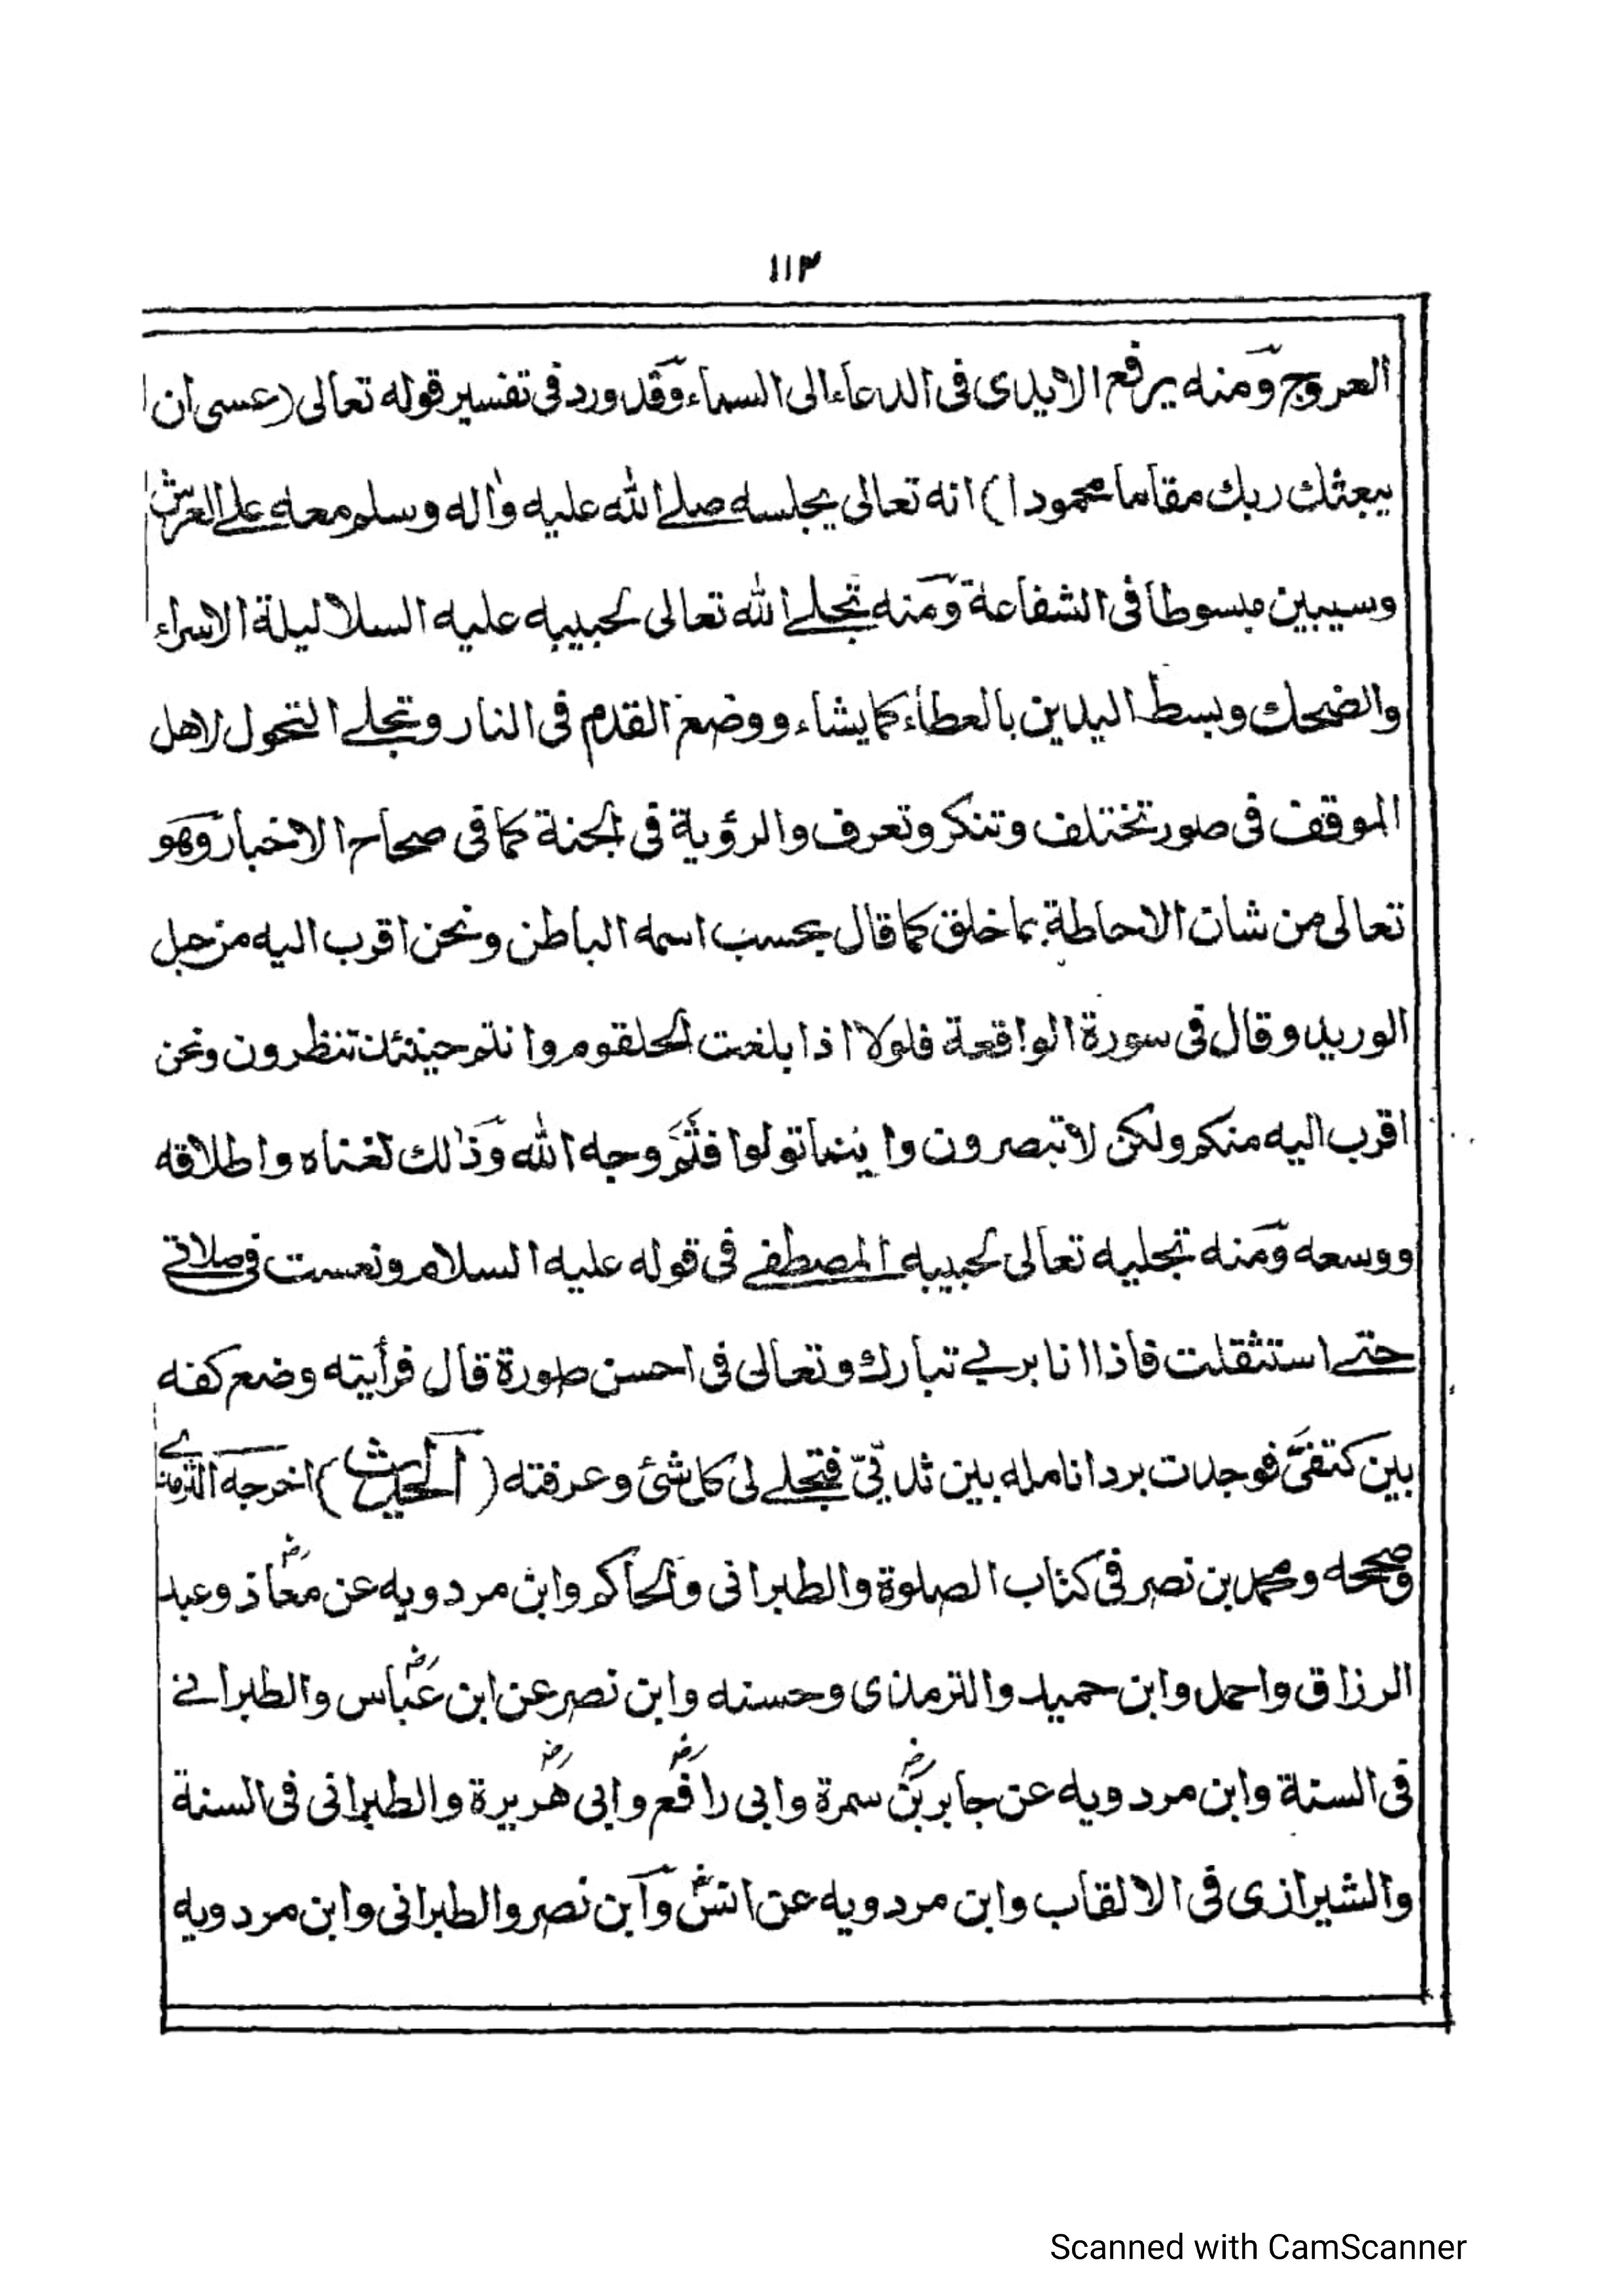 ١١٣
العروج ومنه يرفع الايدى فى الدعاء الى السماء وقد ورد فى تفسير قوله تعالى (عسى ان
يبعثك ربك مقاما محمودا) انه تعالى يجلسه صلے الله عليه واله وسلم معه علے العرش
وسيبين مبسوطا فى الشفاعة ومنه تجلے الله تعالى لحبيبه عليه السلا ليلة الاسراء
والضحك وبسط اليدين بالعطاء كما يشاء ووضع القدم فى النار وتجلے التحول لاهل
الموقف فى صور تختلف وتنكر وتعرف والرؤية فى الجنة كما فى صحاح الاخبار وهو
تعالى من شان الاحاطة بما خلق كما قال بحسب اسمه الباطن ونحن اقرب اليه من حبل
الوريد وقال فى سورة الواقعة فلولا اذا بلغت الحلقوم وانتم حينئذ تنظرون ونحن
اقرب اليه منكم ولكن لا تبصرون واينما تولوا فثم وجه الله وذٰلك لغناه واطلاقه
ووسعه ومنه تجليه تعالى لحبيبه المصطفے فى قوله عليه السلام ونعست فى صلاتے
حتے استثقلت فاذا انا بربے تبارك وتعالى فى احسن صورة قال فرأيته وضع كفه
بين كتفىّ فوجدت برد انامله بين ثديىّ فتجلے لى كل شئ وعرفته (الحديث) اخرجه الترمذے
وصححه ومحمد بن نصر فى كتاب الصلوة والطبرانى والحاكم وابن مردويه عن معاذؓ وعبد
الرزاق واحمد وابن حميد والترمذى وحسنه وابن نصر عن ابن عباسؓ والطبرانے
فى السنة وابن مردويه عن جابر بنؓ سمرة وابى رافعؓ وابى هريرةؓ والطبرانى فى السنة
والشيرازى فى الالقاب وابن مردويه عن انسؓ وابن نصر والطبرانى وابن مردويه
Scanned with CamScanner